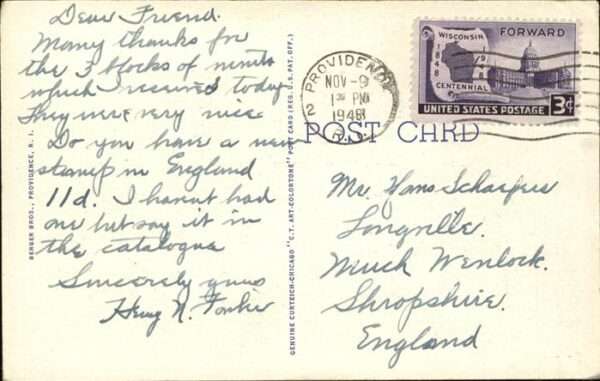 Dear Friend.
Many thanks for
the 3 blocks of mints
which I received today
They were very nice
Do you have a new
stamp in England
11d. I havent had
one but say it in
the catalogue
Sincerely yours
Henry N.
BERGER BROS., PROVIDENCE, R. I.
GENUINE CURTEICH-CHICAGO "C.T. ART-COLORTONE" POST CARD (REG. U.S. PAT. OFF.)
PROVIDENCE
NOV - 9
1 30 PM
1948
R.I.
2
WISCONSIN FORWARD
1848
CENTENNIAL
UNITED STATES POSTAGE 3¢
POST CARD
Mr. Hans Schaefers
Longville.
Much Wenlock.
Shropshire.
England